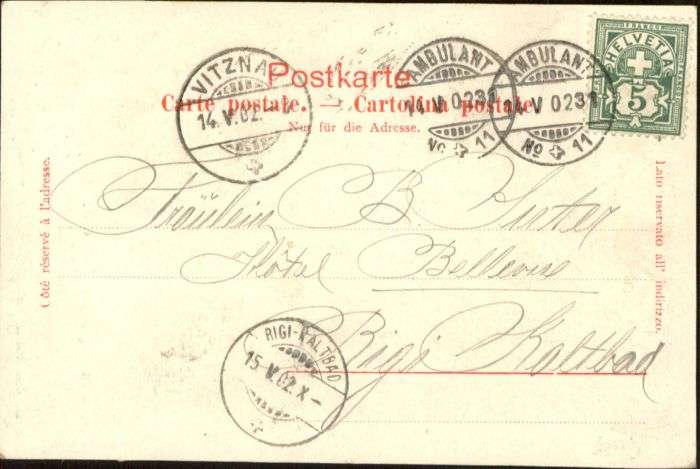 FRANCO
HELVETIA
5
VITZNAU
14.V.02.
AMBULANT
14 V 0231
No 11
AMBULANT
14 V 0231
No 11
Postkarte
Carte postale. — Cartolina postale.
Nur für die Adresse.
Côté réservé à l'adresse.
Lato riservato all' indirizzo.
Fräulein B. Suter
Hôtel Bellevue
Rigi Kaltbad
RIGI-KALTBAD
15.V.02.X-